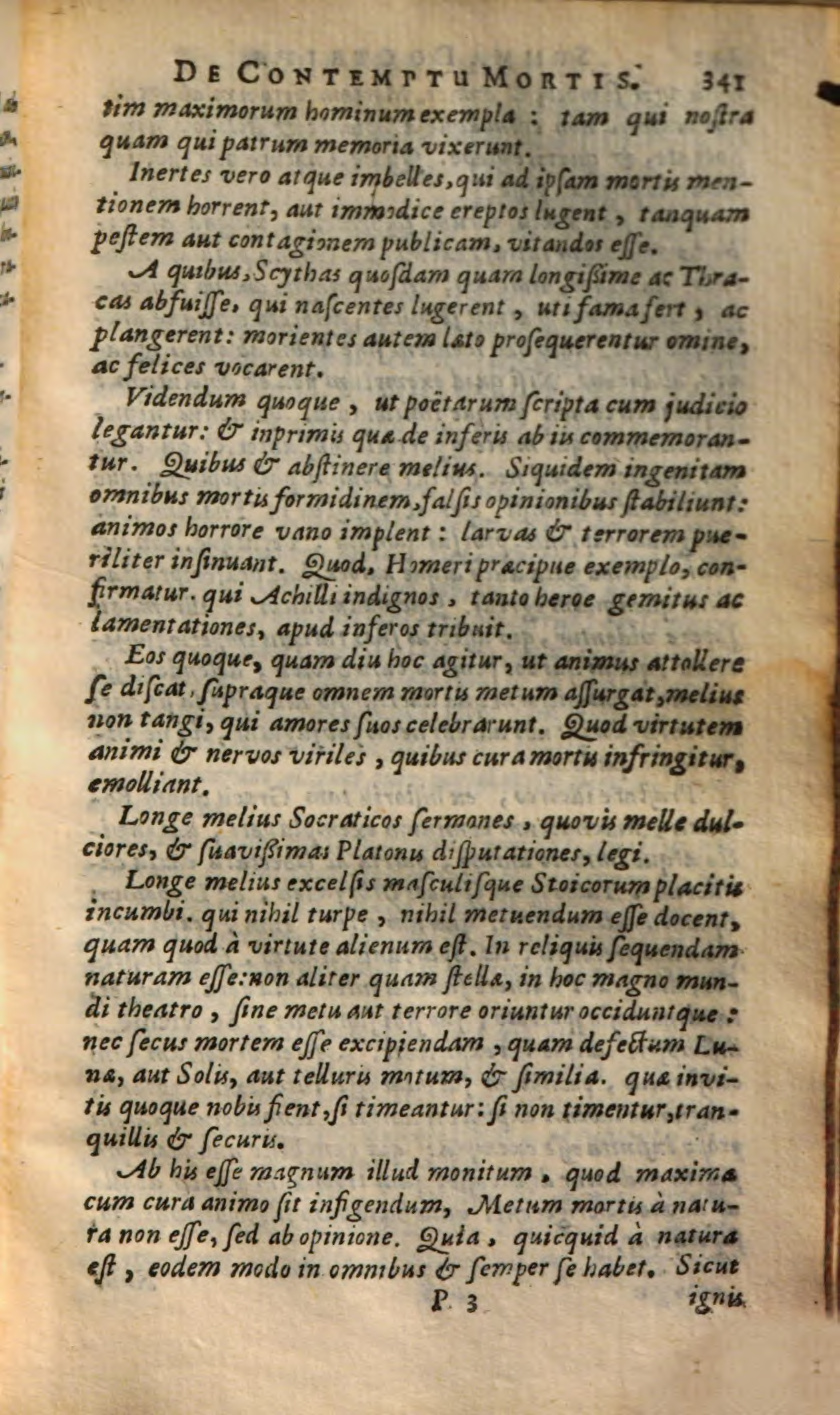 DE CONTEMPTU MORTIS. 341
tim maximorum hominum exempla : tam qui noſtra
quam qui patrum memoria vixerunt.
Inertes vero atque imbelles, qui ad ipſam mortis men-
tionem horrent, aut immodice ereptos lugent, tanquam
peſtem aut contagionem publicam, vitandos eſſe.
A quibus, Scythas quoſdam quam longiſſime ac Thra-
cas abfuiſſe, qui naſcentes lugerent, uti fama fert, ac
plangerent: morientes autem læto proſequerentur omine,
ac felices vocarent.
Videndum quoque, ut poëtarum ſcripta cum judicio
legantur: & inprimis quæ de inferis ab iis commemoran-
tur. Quibus & abſtinere melius. Siquidem ingenitam
omnibus mortis formidinem, falſis opinionibus ſtabiliunt:
animos horrore vano implent : larvas & terrorem pue-
riliter inſinuant. Quod, Homeri præcipue exemplo, con-
firmatur. qui Achilli indignos, tanto heroe gemitus ac
lamentationes, apud inferos tribuit.
Eos quoque, quam diu hoc agitur, ut animus attollere
ſe diſcat, ſupraque omnem mortis metum aſſurgat, melius
non tangi, qui amores ſuos celebrarunt. Quod virtutem
animi & nervos viriles, quibus cura mortis infringitur,
emolliant.
Longe melius Socraticos ſermones, quovis melle dul-
ciores, & ſuaviſſimas Platonis diſputationes, legi.
Longe melius excelſis maſculiſque Stoicorum placitis
incumbi. qui nihil turpe, nihil metuendum eſſe docent,
quam quod à virtute alienum eſt. In reliquis ſequendam
naturam eſſe: non aliter quam ſtellæ, in hoc magno mun-
di theatro, ſine metu aut terrore oriuntur occiduntque :
nec ſecus mortem eſſe excipiendam, quam defectum Lu-
næ, aut Solis, aut telluris motum, & ſimilia. quæ invi-
tis quoque nobis fient, ſi timeantur: ſi non timentur, tran-
quillis & ſecuris.
Ab his eſſe magnum illud monitum, quod maxima
cum cura animo ſit infigendum, Metum mortis à natu-
ra non eſſe, ſed ab opinione. Quia, quicquid à natura
eſt, eodem modo in omnibus & ſemper ſe habet. Sicut
P 3 ignis